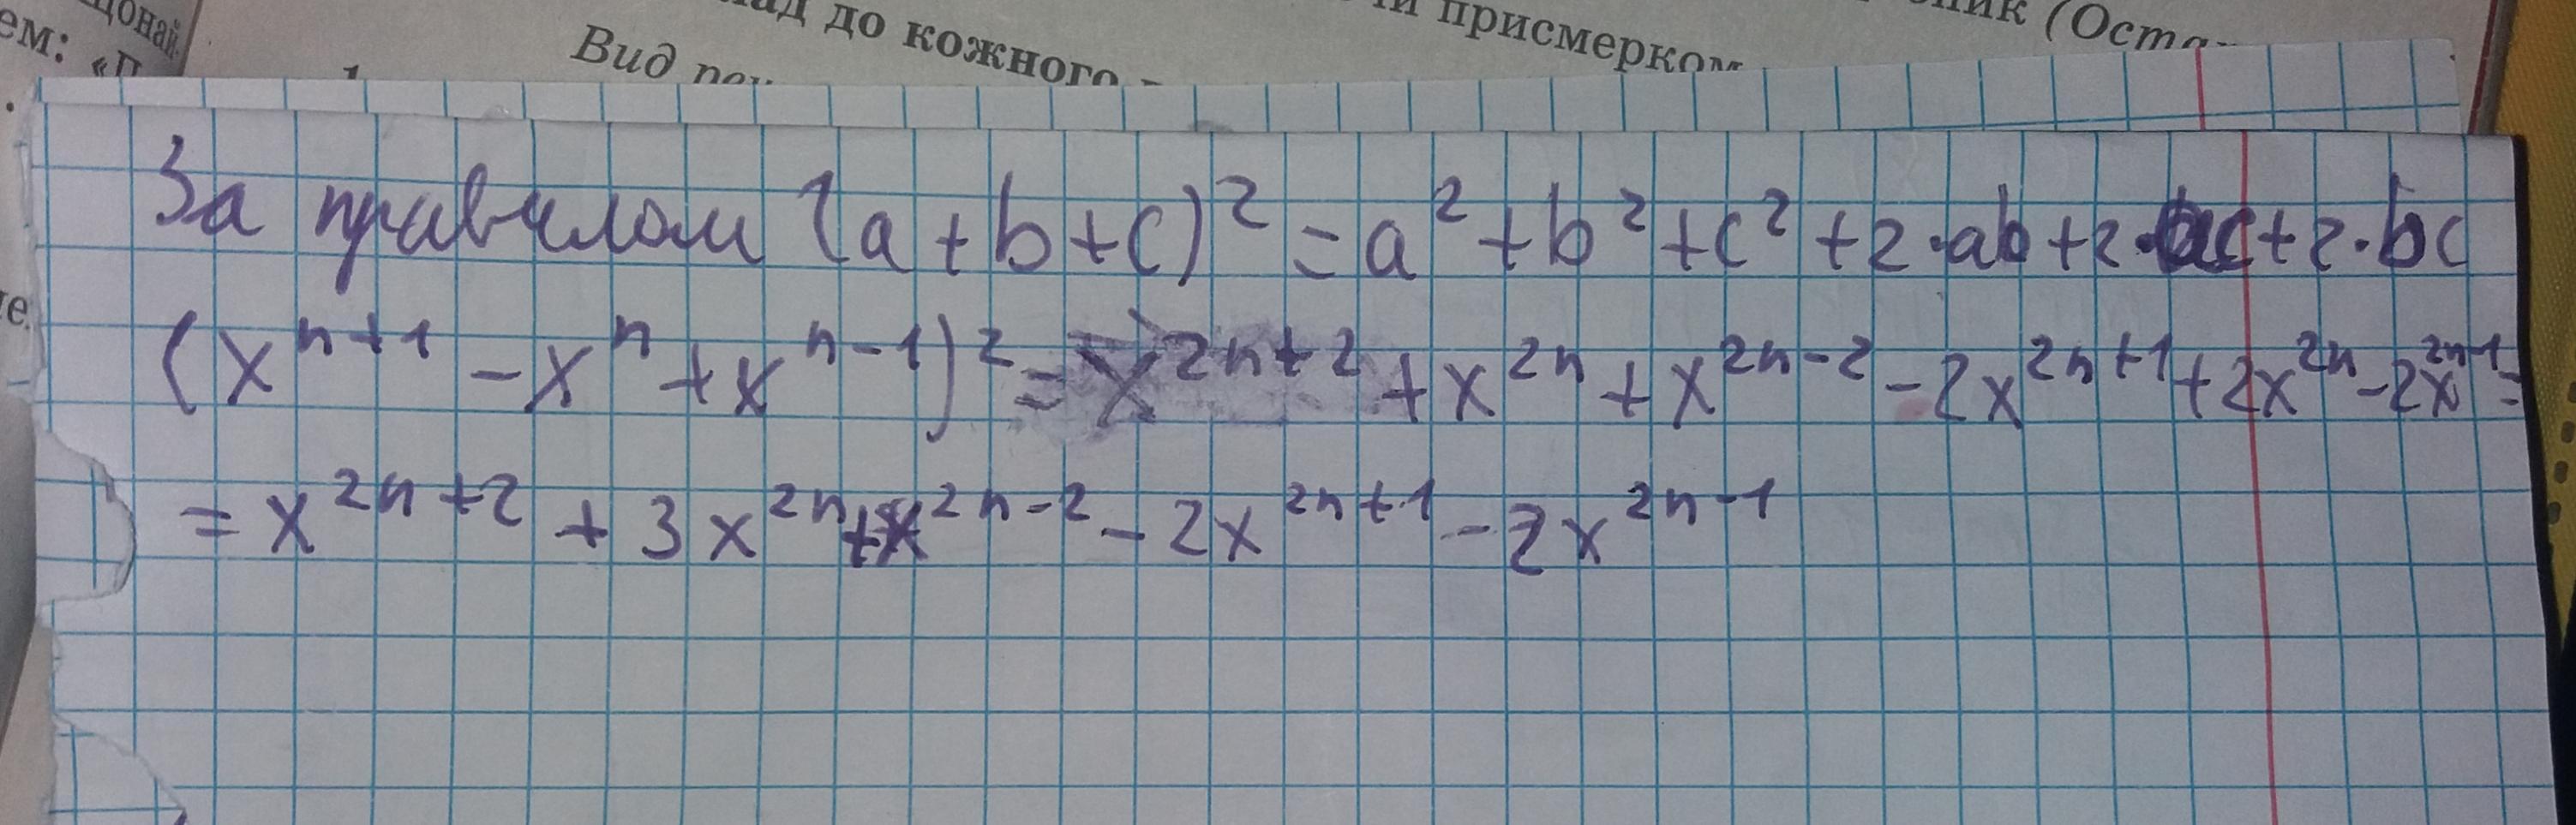 цонай.
ем: «П
до кожного
присмерком
ник (Оста
Вид
За правилом (a+b+c)² = a² + b² + c² + 2·ab + 2·ac + 2·bc
(xⁿ⁺¹ - xⁿ + xⁿ⁻¹)² = x²ⁿ⁺² + x²ⁿ + x²ⁿ⁻² - 2x²ⁿ⁺¹ + 2x²ⁿ - 2x²ⁿ⁻¹ =
= x²ⁿ⁺² + 3x²ⁿ + x²ⁿ⁻² - 2x²ⁿ⁺¹ - 2x²ⁿ⁻¹